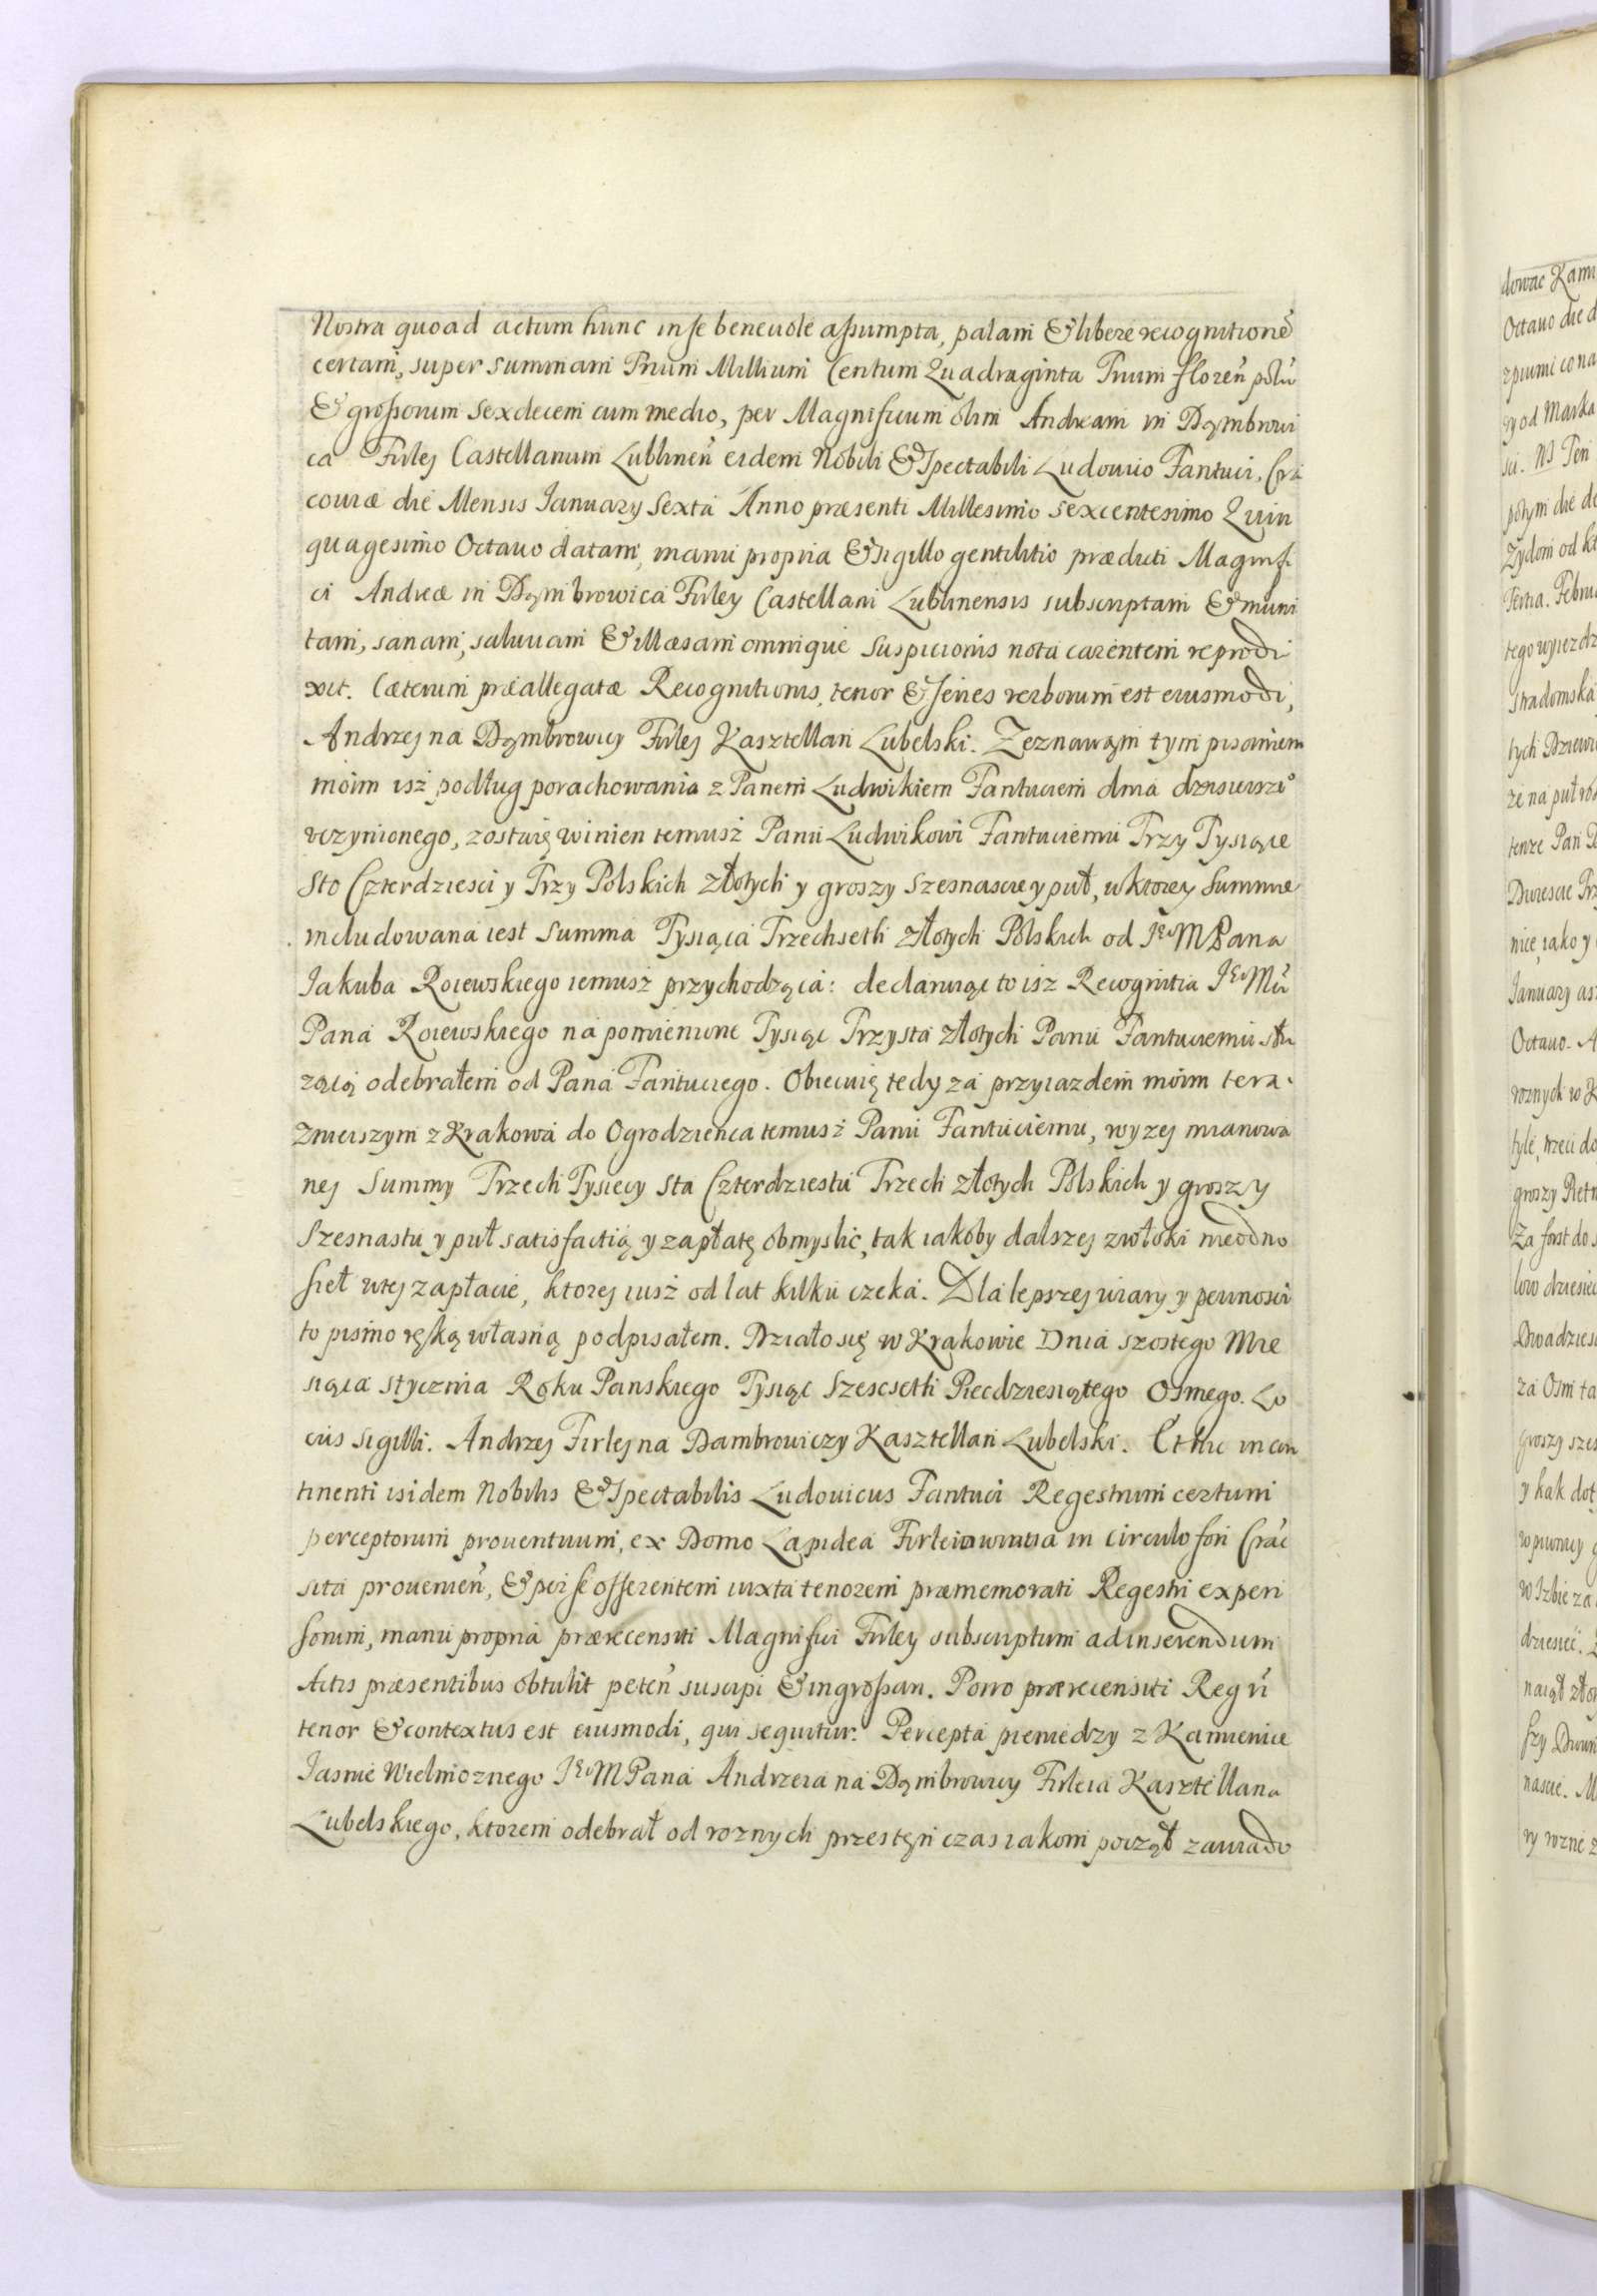 Nostra quoad actum hunc in se beneuole assumpta, palam & libere recognitione
certam, super summam Trium Millium Centum Quadraginta Trium floren polu
& grossorum Sexdecem cum medio, per Magnificum olim Andream in Dąmbrowi
ca Firlej Castellanum Lublinen eidem Nobili & Spectabili Ludouico Fantuci, Cra
couiæ die Mensis January Sexta Anno præsenti Millesimo Sexcentesimo Quin
quagesimo Octauo datam, manu propria & sigillo gentilitio prædicti Magnifi
ci Andreæ in Dąmbrowica Firley Castellani Lublinensis subscriptam & muni
tam, sanam, saluuam & illæsam omnique suspicionis nota carentem reprodu
xit. Cæterum præallegatæ Recognitionis, tenor & series verborum est eiusmodi,
Andrzej na Dąmbrowicy Firlej Kasztellan Lubelski. Zeznawąm tym pisaniem
moim isż podług porachowania z Panem Ludwikiem Fantuciem dnia dzisieiszeº
vczynionego, zostaię winien temusż Panu Ludwikowi Fantuciemu Trzy Tysiące
Sto Czterdziesci y Trzy Polskich złotych y groszy szesnascie y puł, w ktorey summie
includowana iest Summa Tysiąca Trzechseth złotych Polskich od Jeº M Pana
Jakuba Roiewskiego iemusż przychodząca: declaruiąc to isż Recognitia Jeº Mci
Pana Roiewskiego na pomienione Tysiąc Trzysta złotych Panu Fantuciemu słu
zącą odebrałem od Pana Fantuciego. Obiecuię tedy za przyiazdem moim tera
znieiszym z Krakowa do Ogrodzienca temusż Panu Fantuciemu, wyzej mianowa
nej Summy Trzech Tysiecy Sta Czterdziestu Trzech złotych Polskich y groszy
Szesnastu y puł satisfactią y zapłatę obmyslic, tak iakoby dalszej zwłoki nieodno
sieł wtej zapłacie, ktorej iusż od lat kilku czeka. Dla lepszej wiary y pewnosci
to pismo ręką własną podpisałem. Działo się w Krakowie Dnia szostego Mie
siąca stycznia Roku Panskiego Tysiąc Szescseth Piecdziesiątego Osmego. Lo
cus sigilli. Andrzej Firlej na Dambrowiczy Kasztellan Lubelski. Et hic in con
tinenti isidem Nobilis & Spectabilis Ludouicus Fantuci Regestrum certum
perceptorum prouentuum, ex Domo Lapidea Firleiowintia in circulo fori Crac
sita prouenien, & per se offerentem iuxta tenorem præmemorati Regestri expen
sorum, manu propria prærecensiti Magnifici Firley subscriptum ad inserendum
Actis præsentibus obtulit peten suscipi & ingrossari. Porro prærecensiti Regri
tenor & contextus est eiusmodi, qui sequitur. Percepta pieniedzy z Kamienice
Jasnie Wielmoznego Jeº M Pana Andrzeia na Dąmbrowicy Firleia Kasztellana
Lubelskiego, ktorem odebrał od roznych przes tęn czas iakom począł zawiado